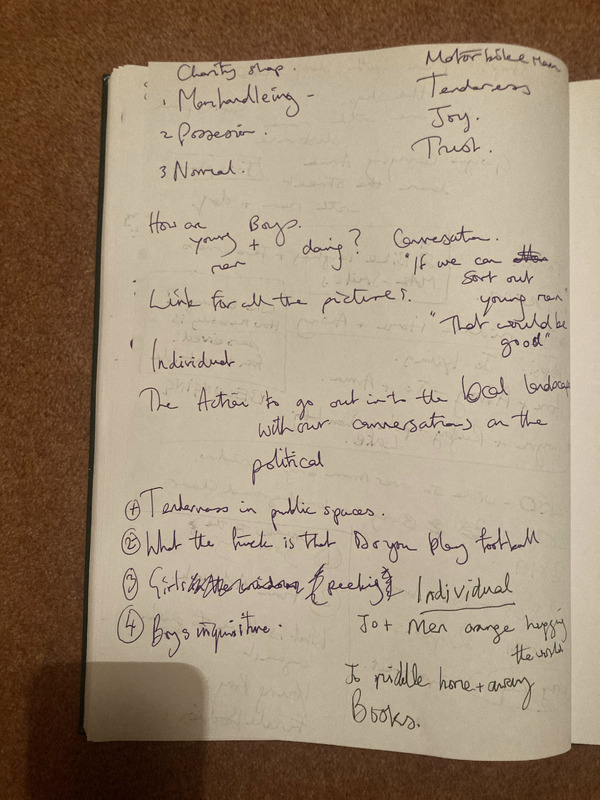 Charity shop.
1 Merchandleing -
2 Possesion.
3 Normal.
Motorbike Man
Tenderess
Joy.
Trust.
How are Boys.
young + doing?
men
Conversation.
"If we can
sort out
young men"
"That would be
good"
Link for all the pictures.
Individual.
The Action to go out into the local landscape
with our conversations on the
political
1 Tenderness in public spaces.
2 What the fuck is that Do you play football
3 Girls peeking
4 Boys inquisitive.
Individual
Jo + Men orange hugging
the world
Jo middle home + away
Books.